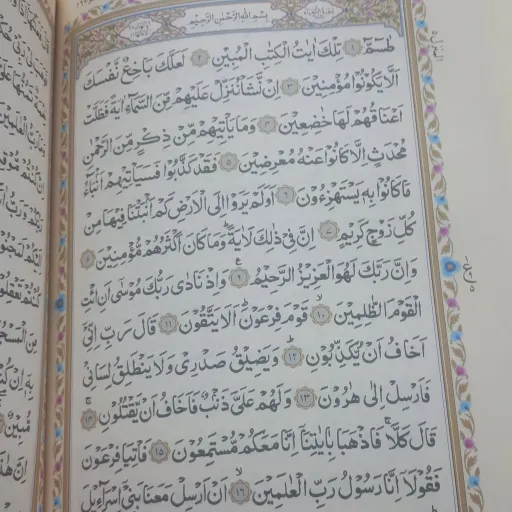 بِسْمِ اللهِ الرَّحْمٰنِ الرَّحِيْمِ
طٰسٓمّٓ ۝١ تِلْكَ اٰيٰتُ الْكِتٰبِ الْمُبِيْنِ ۝٢ لَعَلَّكَ بَاخِعٌ نَّفْسَكَ
اَلَّا يَكُوْنُوْا مُؤْمِنِيْنَ ۝٣ اِنْ نَّشَاْ نُنَزِّلْ عَلَيْهِمْ مِّنَ السَّمَآءِ اٰيَةً فَظَلَّتْ
اَعْنَاقُهُمْ لَهَا خٰضِعِيْنَ ۝٤ وَمَا يَاْتِيْهِمْ مِّنْ ذِكْرٍ مِّنَ الرَّحْمٰنِ
مُحْدَثٍ اِلَّا كَانُوْا عَنْهُ مُعْرِضِيْنَ ۝٥ فَقَدْ كَذَّبُوْا فَسَيَاْتِيْهِمْ اَنْۢبٰٓؤُا
مَا كَانُوْا بِهٖ يَسْتَهْزِءُوْنَ ۝٦ اَوَلَمْ يَرَوْا اِلَى الْاَرْضِ كَمْ اَنْۢبَتْنَا فِيْهَا مِنْ
كُلِّ زَوْجٍ كَرِيْمٍ ۝٧ اِنَّ فِيْ ذٰلِكَ لَاٰيَةً ؕ وَمَا كَانَ اَكْثَرُهُمْ مُّؤْمِنِيْنَ ۝٨
وَاِنَّ رَبَّكَ لَهُوَ الْعَزِيْزُ الرَّحِيْمُ ۝٩ وَاِذْ نَادٰى رَبُّكَ مُوْسٰٓى اَنِ ائْتِ
الْقَوْمَ الظّٰلِمِيْنَ ۝١٠ قَوْمَ فِرْعَوْنَ ؕ اَلَا يَتَّقُوْنَ ۝١١ قَالَ رَبِّ اِنِّيْٓ
اَخَافُ اَنْ يُّكَذِّبُوْنِ ۝١٢ وَيَضِيْقُ صَدْرِيْ وَلَا يَنْطَلِقُ لِسَانِيْ
فَاَرْسِلْ اِلٰى هٰرُوْنَ ۝١٣ وَلَهُمْ عَلَيَّ ذَنْۢبٌ فَاَخَافُ اَنْ يَّقْتُلُوْنِ ۝١٤
قَالَ كَلَّا ۚ فَاذْهَبَا بِاٰيٰتِنَآ اِنَّا مَعَكُمْ مُّسْتَمِعُوْنَ ۝١٥ فَاْتِيَا فِرْعَوْنَ
فَقُوْلَآ اِنَّا رَسُوْلُ رَبِّ الْعٰلَمِيْنَ ۝١٦ اَنْ اَرْسِلْ مَعَنَا بَنِيْٓ اِسْرَآءِيْلَ